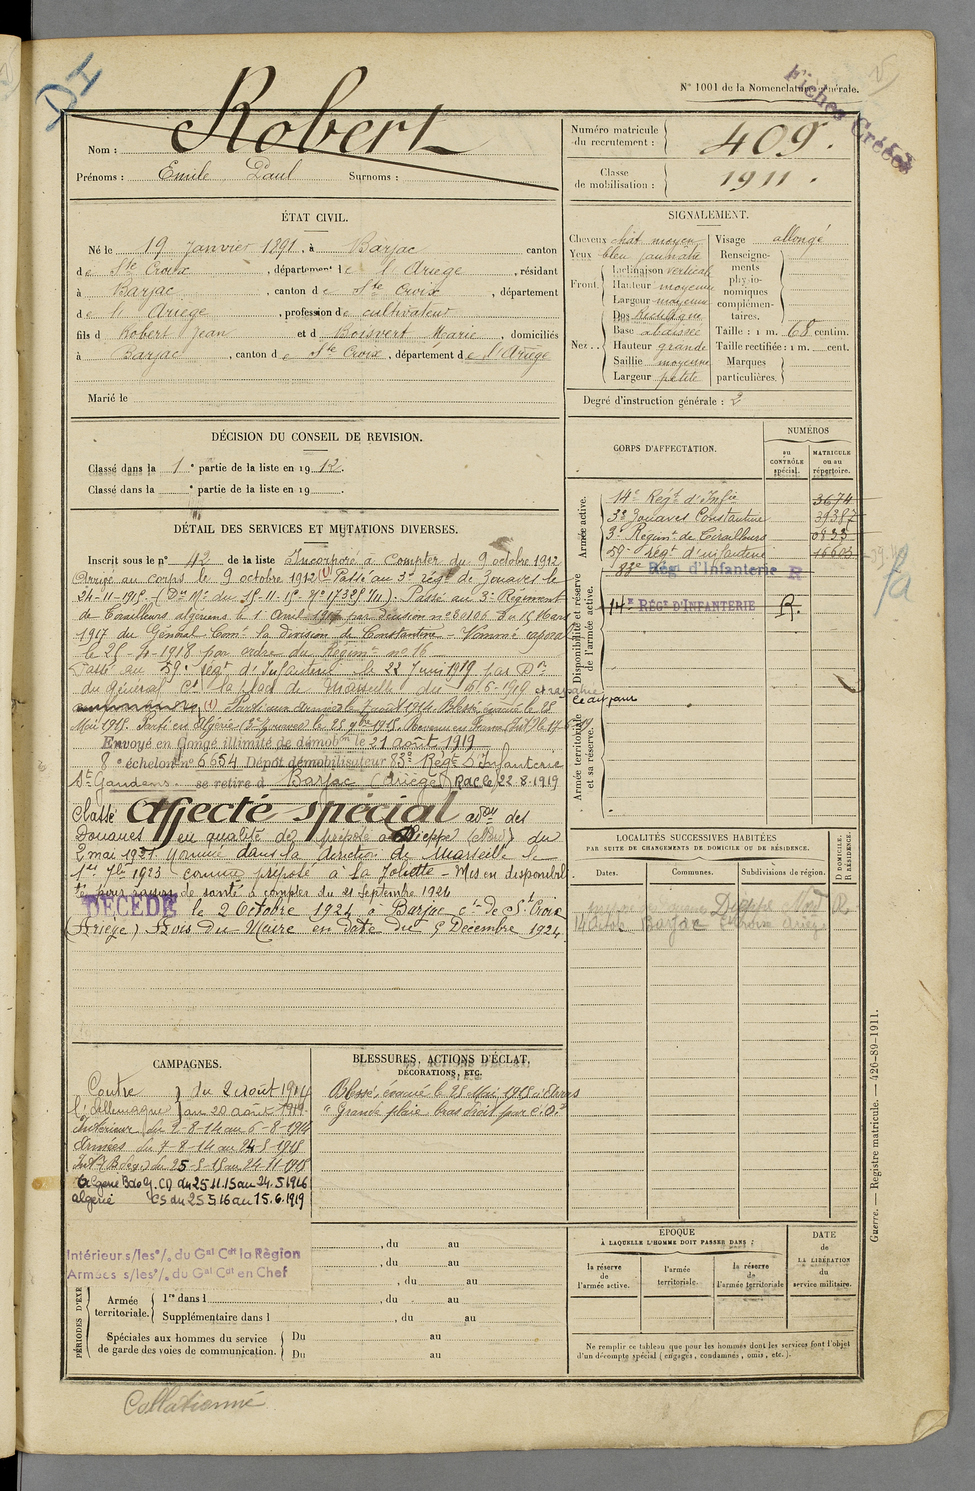 DH
N° 1001 de la Nomenclature générale.
Fiches Créées
Nom : Robert
Prénoms : Emile Paul Surnoms :
Numéro matricule du recrutement : 409.
Classe de mobilisation : 1911.
ÉTAT CIVIL.
Né le 19 Janvier 1891, à Barjac canton
de Ste Croix, département de l'Ariège, résidant
à Barjac, canton de Ste Croix, département
de l'Ariège, profession de cultivateur
fils d Robert Jean et d Boisvert Marie, domiciliés
à Barjac, canton de Ste Croix, département de l'Ariège
Marié le
SIGNALEMENT.
Cheveux chât moyen
Yeux bleu jaunâtre
Front. Inclinaison verticale
Hauteur moyenne
Largeur moyenne
Nez. Dos rectiligne
Base abaissée
Hauteur grande
Saillie moyenne
Largeur petite
Visage allongé
Renseignements physionomiques complémentaires.
Taille : 1 m. 68 centim.
Taille rectifiée : 1 m. cent.
Marques particulières.
Degré d'instruction générale : 2
DÉCISION DU CONSEIL DE REVISION.
Classé dans la 1e partie de la liste en 1912.
Classé dans la e partie de la liste en 19 .
DÉTAIL DES SERVICES ET MUTATIONS DIVERSES.
Inscrit sous le n° 42 de la liste Incorporé à compter du 9 octobre 1912
Arrivé au corps le 9 octobre 1912 (1) Passé au 3e régt de Zouaves le
24-11-1915 Passé au 3e Régiment
de Tirailleurs algériens le 1 Avril par décision n° du 15 Mars
1917 du Général Comt la division de Constantine - Nommé caporal
le 25-4-1918 par ordre du Régimt n° 16
Passé au 59e régt d'Infanterie le 22 Juin 1919 par Dn
du général Ct la de Marseille du 16-6-1919 et rayé
le dit jour
(1) Parti aux armées le 7 août 1914. Blessé, évacué le 25
Mai 1915. Parti en Algérie (3e Zouaves) le 25 9bre 1915.
Envoyé en Congé illimité de démobon le 21 août 1919
8e échelon n° 6654 Dépôt démobilisateur 83e Régt d'Infanterie
St Gaudens se retire à Barjac (Ariège) Rac le 22-8-1919
Classé Affecté spécial admon des
Douanes en qualité de préposé à Dieppe (Nord) du
2 mai 1921. Nommé dans la direction de Marseille le
1er 7bre 1923 comme préposé à La Joliette - Mis en disponibili
té pour raison de santé à compter du 21 septembre 1924
DÉCÉDÉ le 2 Octobre 1924 à Barjac con de St Croix
(Ariège) Avis du Maire en date du 5 Décembre 1924
CORPS D'AFFECTATION.
NUMÉROS
au CONTRÔLE spécial.
MATRICULE ou au répertoire.
Armée active.
14e Régt d'Infie 3674
3e Zouaves Constantine 39387
3e Regimt de Tirailleurs
59e régt d'infanterie 16603
Disponibilité et réserve de l'armée active.
83e Régt d'Infanterie R
14e RÉGT D'INFANTERIE R.
Armée territoriale et sa réserve.
LOCALITÉS SUCCESSIVES HABITÉES
PAR SUITE DE CHANGEMENTS DE DOMICILE OU DE RÉSIDENCE.
Dates. Communes. Subdivisions de région. D DOMICILE. R RÉSIDENCE.
Dieppe Nord R
14 Barjac St Croix Ariège
CAMPAGNES.
Contre l'Allemagne du 2 août 1914 au 20 août 1919
Intérieur du 2-8-14 au 6-8-1914
Armées du 7-8-14 au 24-5-1915
Intr (Blessé) du 25-5-15 au 24-11-1915
Algérie du 25.11.15 au 24.5.1916
Algérie CS du 25.5.16 au 15.6.1919
BLESSURES, ACTIONS D'ÉCLAT,
DÉCORATIONS, ETC.
Blessé, évacué le 25 Mai 1915
"Grande plaie bras droit par é. o."
Intérieur s/les o/. du Gal Cdt la Région
Armées s/les o/. du Gal Cdt en Chef
, du au
, du au
, du au
PÉRIODES D'EXE
Armée territoriale. 1re dans l , du au
Supplémentaire dans l , du au
Spéciales aux hommes du service de garde des voies de communication. Du au
Du au
ÉPOQUE
À LAQUELLE L'HOMME DOIT PASSER DANS :
la réserve de l'armée active.
l'armée territoriale.
la réserve de l'armée territoriale
DATE de LA LIBÉRATION du service militaire.
Ne remplir ce tableau que pour les hommes dont les services font l'objet
d'un décompte spécial (engagés, condamnés, omis, etc.).
Guerre. — Registre matricule. — 426-89-1911.
Collationné